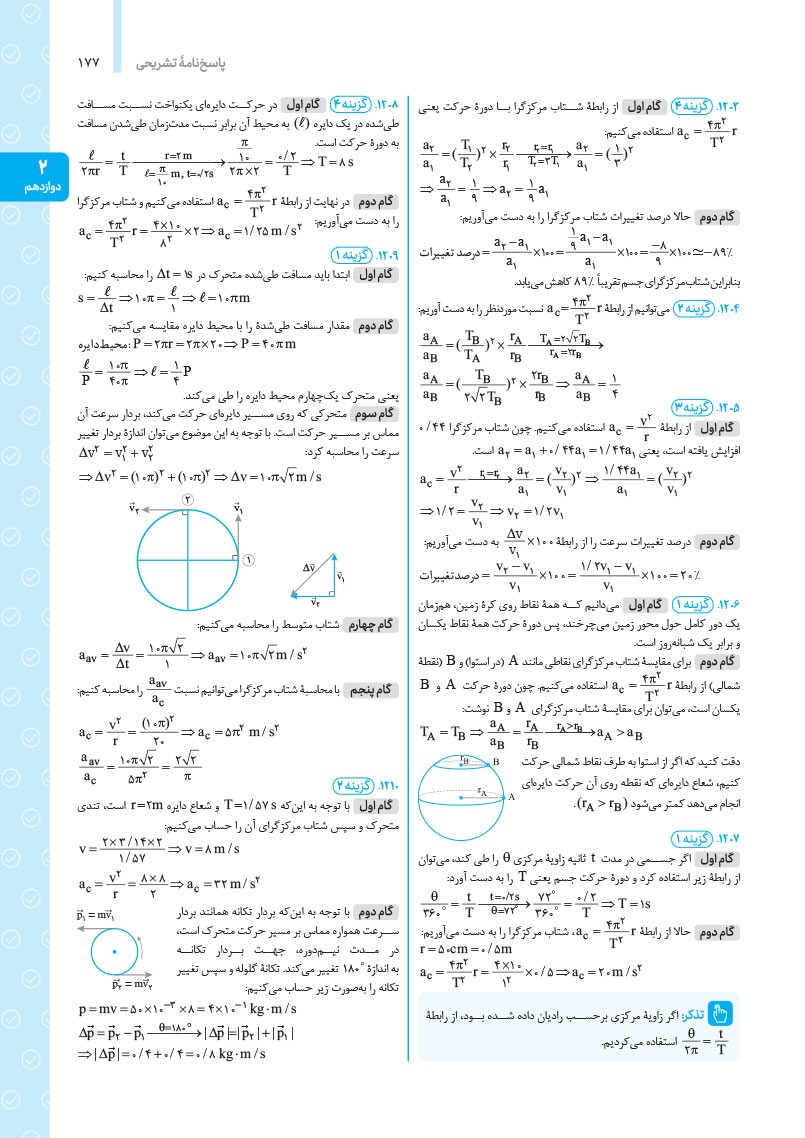 پاسخ‌نامهٔ تشریحی
۱۷۷
۲
دوازدهم
۱۲۰۳. گزینه ۴ گام اول از رابطهٔ شـتاب مرکزگرا بـا دورهٔ حرکت یعنی
a_c = ۴π²/T² r استفاده می‌کنیم:
a₂/a₁ = (T₁/T₂)² × r₂/r₁ —(r₁=r₂, T₂=۳T₁)→ a₂/a₁ = (۱/۳)²
⇒ a₂/a₁ = ۱/۹ ⇒ a₂ = ۱/۹ a₁
گام دوم حالا درصد تغییرات شتاب مرکزگرا را به دست می‌آوریم:
درصد تغییرات = (a₂−a₁)/a₁ ×۱۰۰ = (۱/۹ a₁−a₁)/a₁ ×۱۰۰ = −۸/۹ ×۱۰۰ ≃ −۸۹٪
بنابراین شتاب مرکزگرای جسم تقریباً ۸۹٪ کاهش می‌یابد.
۱۲۰۴. گزینه ۲ می‌توانیم از رابطهٔ a_c = ۴π²/T² r نسبت موردنظر را به دست آوریم:
a_A/a_B = (T_B/T_A)² × r_A/r_B —(T_A=۲√۲T_B, r_A=۲r_B)→
a_A/a_B = (T_B/۲√۲T_B)² × ۲r_B/r_B ⇒ a_A/a_B = ۱/۴
۱۲۰۵. گزینه ۳
گام اول از رابطهٔ a_c = v²/r استفاده می‌کنیم. چون شتاب مرکزگرا ۰/۴۴
افزایش یافته است، یعنی a₂ = a₁ + ۰/۴۴a₁ = ۱/۴۴a₁ است.
a_c = v²/r —(r₁=r₂)→ a₂/a₁ = (v₂/v₁)² ⇒ ۱/۴۴a₁/a₁ = (v₂/v₁)²
⇒ ۱/۲ = v₂/v₁ ⇒ v₂ = ۱/۲v₁
گام دوم درصد تغییرات سرعت را از رابطهٔ Δv/v₁ ×۱۰۰ به دست می‌آوریم:
درصد تغییرات = (v₂−v₁)/v₁ ×۱۰۰ = (۱/۲v₁−v₁)/v₁ ×۱۰۰ = ۲۰٪
۱۲۰۶. گزینه ۱ گام اول می‌دانیم کـه همهٔ نقاط روی کرهٔ زمین، هم‌زمان
یک دور کامل حول محور زمین می‌چرخند، پس دورهٔ حرکت همهٔ نقاط یکسان
و برابر یک شبانه‌روز است.
گام دوم برای مقایسهٔ شتاب مرکزگرای نقاطی مانند A (در استوا) و B (نقطهٔ
شمالی) از رابطهٔ a_c = ۴π²/T² r استفاده می‌کنیم. چون دورهٔ حرکت A و B
یکسان است، می‌توان برای مقایسهٔ شتاب مرکزگرای A و B نوشت:
T_A = T_B ⇒ a_A/a_B = r_A/r_B —(r_A>r_B)→ a_A > a_B
دقت کنید که اگر از استوا به طرف نقاط شمالی حرکت
کنیم، شعاع دایره‌ای که نقطه روی آن حرکت دایره‌ای
انجام می‌دهد کمتر می‌شود (r_A > r_B).
r_B B
r_A A
۱۲۰۷. گزینه ۱
گام اول اگر جسـمی در مدت t ثانیه زاویهٔ مرکزی θ را طی کند، می‌توان
از رابطهٔ زیر استفاده کرد و دورهٔ حرکت جسم یعنی T را به دست آورد:
θ/۳۶۰° = t/T —(t=۰/۲s, θ=۷۲°)→ ۷۲°/۳۶۰° = ۰/۲/T ⇒ T = ۱s
گام دوم حالا از رابطهٔ a_c = ۴π²/T² r، شتاب مرکزگرا را به دست می‌آوریم:
r = ۵۰cm = ۰/۵m
a_c = ۴π²/T² r = ۴×۱۰/۱² × ۰/۵ ⇒ a_c = ۲۰ m/s²
تذکر: اگر زاویهٔ مرکزی برحسـب رادیان داده شـده بـود، از رابطهٔ
θ/۲π = t/T استفاده می‌کردیم.
۱۲۰۸. گزینه ۴ گام اول در حرکـت دایره‌ای یکنواخت نسـبت مسـافت
طی‌شده در یک دایره (ℓ) به محیط آن برابر نسبت مدت‌زمان طی‌شدن مسافت
به دورهٔ حرکت است.
ℓ/۲πr = t/T —(r=۲m, ℓ=π/۱۰ m, t=۰/۲s)→ (π/۱۰)/(۲π×۲) = ۰/۲/T ⇒ T = ۸ s
گام دوم در نهایت از رابطهٔ a_c = ۴π²/T² r استفاده می‌کنیم و شتاب مرکزگرا
را به دست می‌آوریم: a_c = ۴π²/T² r = ۴×۱۰/۸² × ۲ ⇒ a_c = ۱/۲۵ m/s²
۱۲۰۹. گزینه ۱
گام اول ابتدا باید مسافت طی‌شده متحرک در Δt = ۱s را محاسبه کنیم:
s = ℓ/Δt ⇒ ۱۰π = ℓ/۱ ⇒ ℓ = ۱۰πm
گام دوم مقدار مسافت طی‌شدهٔ را با محیط دایره مقایسه می‌کنیم:
محیط دایره: P = ۲πr = ۲π×۲۰ ⇒ P = ۴۰πm
ℓ/P = ۱۰π/۴۰π ⇒ ℓ = ۱/۴ P
یعنی متحرک یک‌چهارم محیط دایره را طی می‌کند.
گام سوم متحرکی که روی مسـیر دایره‌ای حرکت می‌کند، بردار سرعت آن
مماس بر مسـیر حرکت است. با توجه به این موضوع می‌توان اندازهٔ بردار تغییر
سرعت را محاسبه کرد: Δv² = v₁² + v₂²
⇒ Δv² = (۱۰π)² + (۱۰π)² ⇒ Δv = ۱۰π√۲ m/s
v⃗₂ ② v⃗₁
① Δv⃗ v⃗₁
v⃗₂
گام چهارم شتاب متوسط را محاسبه می‌کنیم:
a_av = Δv/Δt = ۱۰π√۲/۱ ⇒ a_av = ۱۰π√۲ m/s²
گام پنجم با محاسبهٔ شتاب مرکزگرا می‌توانیم نسبت a_av/a_c را محاسبه کنیم:
a_c = v²/r = (۱۰π)²/۲۰ ⇒ a_c = ۵π² m/s²
a_av/a_c = ۱۰π√۲/۵π² = ۲√۲/π
۱۲۱۰. گزینه ۲
گام اول با توجه به این‌که T = ۱/۵۷ s و شعاع دایره r = ۲m است، تندی
متحرک و سپس شتاب مرکزگرای آن را حساب می‌کنیم:
v = ۲×۳/۱۴×۲/۱/۵۷ ⇒ v = ۸ m/s
a_c = v²/r = ۸×۸/۲ ⇒ a_c = ۳۲ m/s²
گام دوم با توجه به این‌که بردار تکانه همانند بردار
سـرعت همواره مماس بر مسیر حرکت متحرک است،
در مـدت نیـم‌دوره، جهـت بـردار تکانـه
به اندازهٔ ۱۸۰° تغییر می‌کند. تکانهٔ گلوله و سپس تغییر
تکانه را به‌صورت زیر حساب می‌کنیم:
p⃗₁ = mv⃗₁
p⃗₂ = mv⃗₂
p = mv = ۵۰×۱۰⁻³ × ۸ = ۴×۱۰⁻¹ kg·m/s
Δp⃗ = p⃗₂ − p⃗₁ —(θ=۱۸۰°)→ |Δp⃗| = |p⃗₂| + |p⃗₁|
⇒ |Δp⃗| = ۰/۴ + ۰/۴ = ۰/۸ kg·m/s